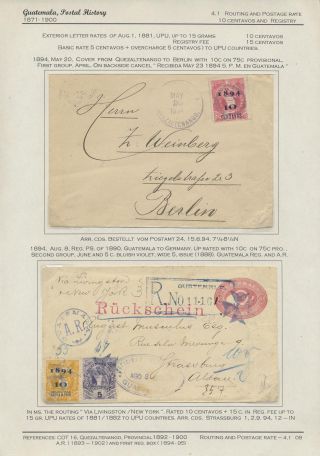 Guatemala, Postal History
1871-1900
4.1 Routing and Postage rate
10 centavos and Registry
Exterior Letter rates of Aug 1, 1881, UPU, up to 15 grams 10 centavos
Registry fee 15 centavos
Basic rate 5 centavos + overcharge 5 centavos) to UPU countries.
1894, May 20, Cover from Quezaltenango to Berlin with 10c on 75c provisional.
First group, April. On backside cancel " Recibida May 23 1894 5 P. M. en Guatemala "
MAY
QUEZALTENANGO
1894
10
CENTAVOS
Herrn
Z. Weinberg
Berlin
Arr. cds. Bestellt vom Postamt 24, 15.6.94, 7¼-8¼N
1894, Aug. 8, Reg. PS. of 1890, Guatemala to Germany. Up rated with 10c on 75c pro.
Second group, June and 5 c. bluish violet, wide 5, issue (1888). Guatemala Reg. and A.R.
Via Livingston
New York
GUATEMALA
R. No
Rückschein
A.R.
August Musculus Esq.
Strassburg
Alsace
1894
10
5
In ms. the routing " Via Livingston /New York ". Rated 10 centavos + 15 c. in Reg. fee up to
15 gr. UPU rates of 1881/1882 to UPU countries. Arr. cds. Strassburg 1, 2.9. 94, 12 —IN
References: COT 16, Quezaltenango, Provincial 1892 - 1900
A.R.(1893 - 1902) and first reg. box (1894-95)
Routing and Postage rate - 4.1 09